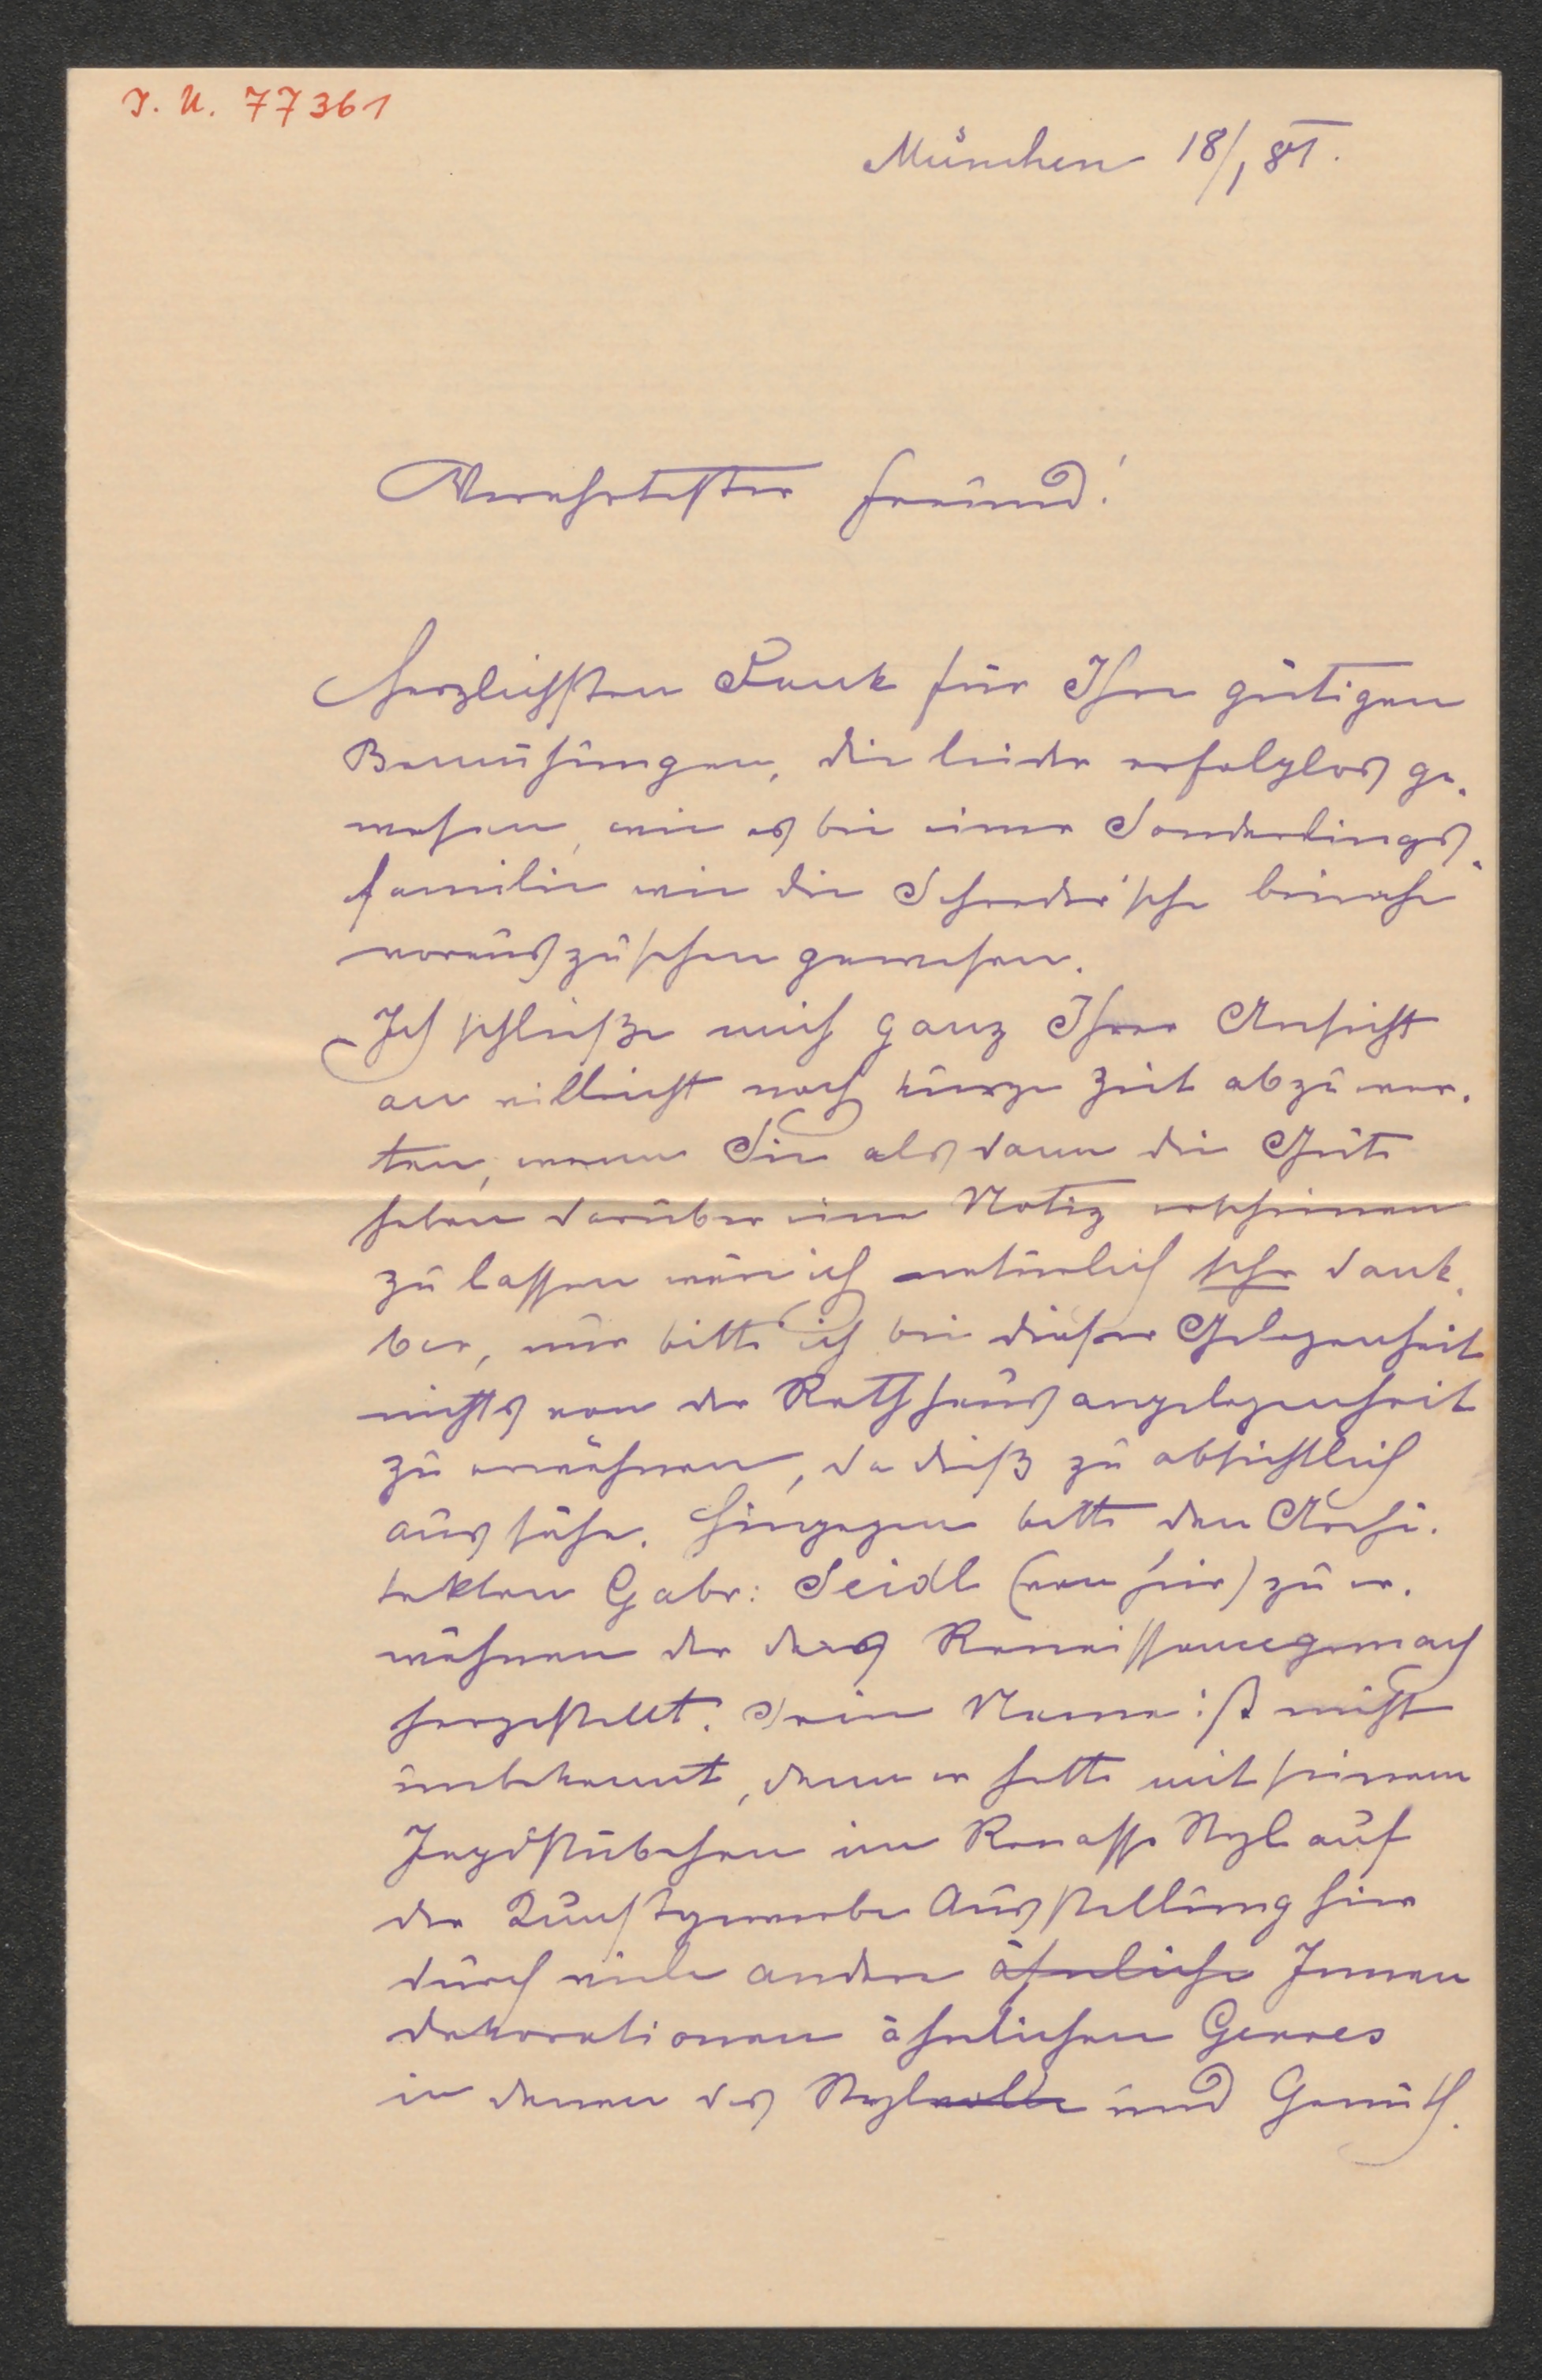 I. N. 77361
München 18/1 81.
Verehrtester Freund!
Herzlichsten Dank für Ihre gütigen
Bemühungen, die leider erfolglos ge-
wesen, wie es bei einer Sonderlings-
familie wie die Schroeder'sche beinahe
vorauszusehen gewesen.
Ich schließe mich ganz Ihrer Ansicht
an villeicht noch kurze Zeit abzuwar-
ten, wenn Sie alsdann die Güte
haben darüber eine Notiz erscheinen
zu lassen wäre ich natürlich sehr dank-
bar, nur bitte ich bei dieser Gelegenheit
nichts von der Rathhausangelegenheit
zu erwähnen, da dieß zu absichtlich
aussähe. Hingegen bitte den Archi-
tekten Gabr: Seidl (von hier) zu er-
wähnen der das Renaissancegemach
hergestellt. Sein Name ist nicht
unbekannt, denn er hatte mit seinem
Jagdstübchen im Renass. Styl auf
der Kunstgewerbe Ausstellung hier
durch viele andere ähnliche Innen
dekorationen ähnlichen Genres
in denen das Stylvolle und Gemüth-